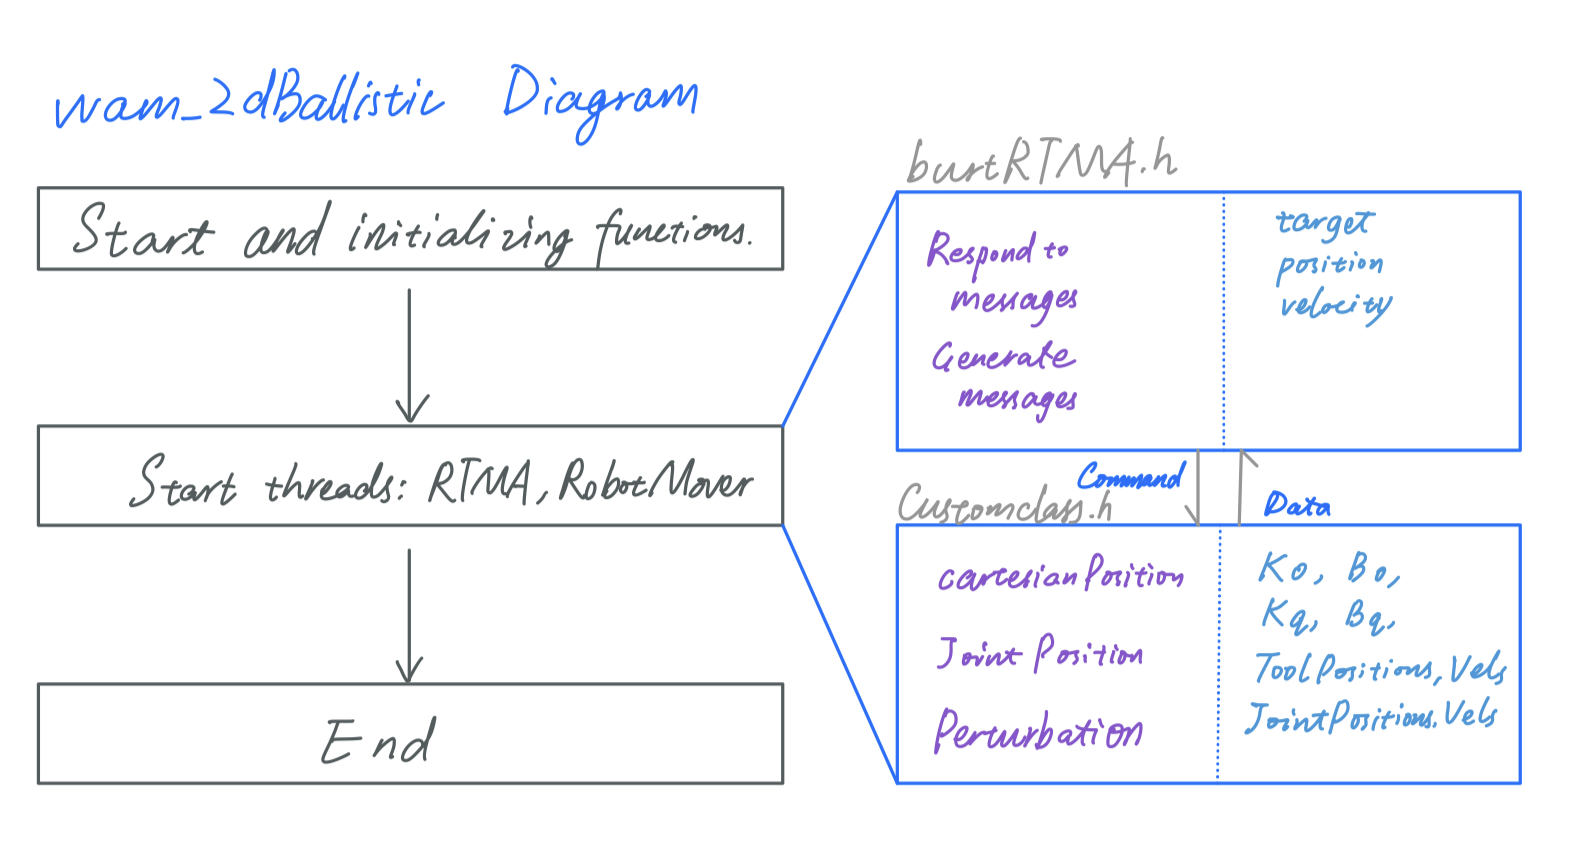 wam_2dBallistic Diagram
Start and initializing functions.
Start threads: RTMA, RobotMover
End
burtRTMA.h
Respond to
messages
Generate
messages
target
position
velocity
Command
Data
Customclass.h
cartesianPosition
Joint Position
Perturbation
Ko, Bo,
Kq, Bq,
ToolPositions, Vels
JointPositions. Vels